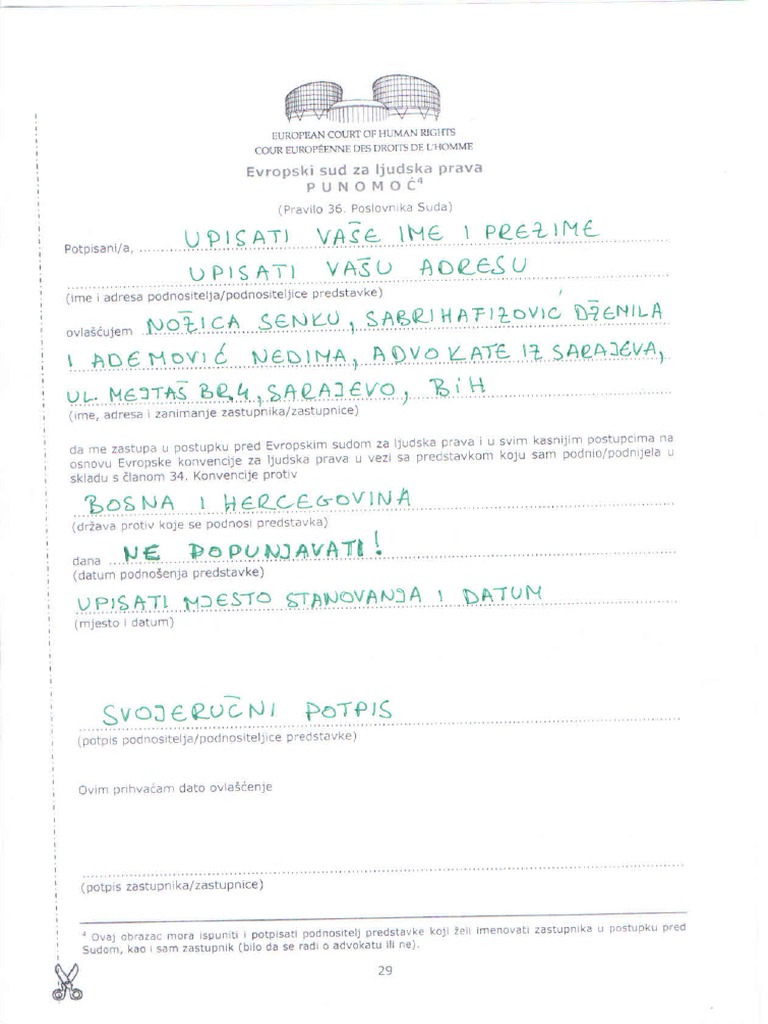 EUROPEAN COURT OF HUMAN RIGHTS
COUR EUROPÉENNE DES DROITS DE L'HOMME
Evropski sud za ljudska prava
PUNOMOĆ⁴
(Pravilo 36. Poslovnika Suda)
Potpisani/a, UPISATI VAŠE IME I PREZIME
UPISATI VAŠU ADRESU
(ime i adresa podnositelja/podnositeljice predstavke)
ovlašćujem NOŽICA SENKU, SABRIHAFIZOVIĆ DŽENILA
I ADEMOVIĆ NEDIMA, ADVOKATE IZ SARAJEVA,
UL. MEJTAŠ BR.4, SARAJEVO, BiH
(ime, adresa i zanimanje zastupnika/zastupnice)
da me zastupa u postupku pred Evropskim sudom za ljudska prava i u svim kasnijim postupcima na
osnovu Evropske konvencije za ljudska prava u vezi sa predstavkom koju sam podnio/podnijela u
skladu s članom 34. Konvencije protiv
BOSNA I HERCEGOVINA
(država protiv koje se podnosi predstavka)
dana NE POPUNJAVATI!
(datum podnošenja predstavke)
UPISATI MJESTO STANOVANJA I DATUM
(mjesto i datum)
SVOJERUČNI POTPIS
(potpis podnositelja/podnositeljice predstavke)
Ovim prihvaćam dato ovlašćenje
(potpis zastupnika/zastupnice)
⁴ Ovaj obrazac mora ispuniti i potpisati podnositelj predstavke koji želi imenovati zastupnika u postupku pred
Sudom, kao i sam zastupnik (bilo da se radi o advokatu ili ne).
29